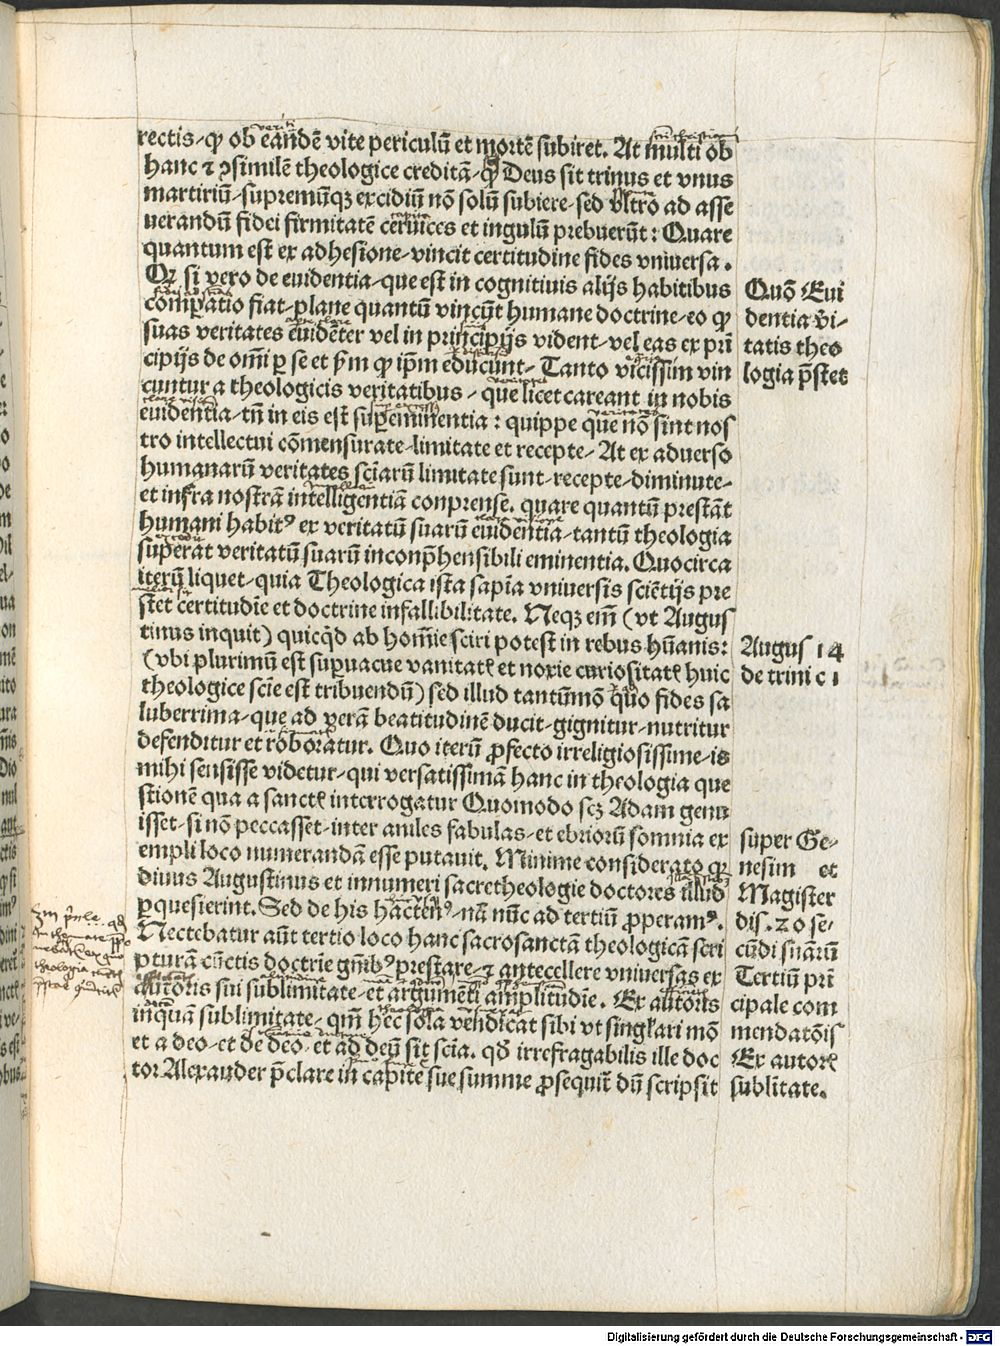 rectis-ꝙ ob eandē vite periculū et mortē subiret. At multi ob
hanc ⁊ ꝯsimilē theologice creditā-ꝙ Deus sit trinus et vnus
martiriū-supremūqꝫ excidiū nō solū subiere-sed vltro ad asse
uerandū fidei firmitatē ceruices et iugulū prebuerūt: Quare
quantum est ex adhesione-vincit certitudine fides vniuersa.
Qꝛ si vero de euidentia-que est in cognitiuis alijs habitibus
comꝑatio fiat-plane quantū vincūt humane doctrine-eo ꝙ
suas veritates euidēter vel in principijs vident-vel eas ex prī
cipijs de omī ꝑ se et ẜm ꝙ ip̄m educunt-Tanto vicissim vin
cuntur a theologicis veritatibus-que licet careant in nobis
euidentia-tn̄ in eis est suꝑeminentia: quippe que nō sint nos
tro intellectui cōmensurate-limitate et recepte-At ex aduerso
humanarū veritates sciarū limitate sunt-recepte-diminute-
et infra nostrā intelligentiā conprense. quare quantū prestāt
humani habitꝰ ex veritatū suarū euidentia-tantū theologia
superat veritatū suarū inconp̄hensibili eminentia. Quocirca
iterū liquet-quia Theologica ista sapīa vniuersis sciētijs pre
stet certitudīe et doctrine infallibilitate. Neqꝫ em̄ (vt Augus
tinus inquit) quicq̄d ab homīe sciri potest in rebus hūanis:
(vbi plurimū est supuacue vanitatꝭ et noxie curiositatꝭ huic
theologice scīe est tribuendū) sed illud tantūmō quo fides sa
luberrima-que ad ꝟerā beatitudinē ducit-gignitur-nutritur
defenditur et roboratur. Quo iterū ꝓfecto irreligiosissime-is
mihi sensisse videtur-qui versatissimā hanc in theologia que
stionē qua a sanctꝭ interrogatur Quomodo scꝫ Adam genu
isset-si nō peccasset-inter aniles fabulas-et ebriorū somnia ex
empli loco numerandā esse putauit. Minime considerato qꝛ
diuus Augustinus et innumeri sacretheologie doctores illud
ꝑquesierint. Sed de his hactenꝰ-nā nūc ad tertiū ꝓperamꝰ.
Nectebatur aūt tertio loco hanc sacrosanctā theologicā scri
pturā cūctis doctrīe gn̄ibꝰ prestare-⁊ antecellere vniuersas ex
autoris sui sublimitate-et argumēti amplitudīe. Ex autoris
inquā sublimitate-qm̄ hec sola vendicat sibi vt singłari mō
et a deo-et de deo-et ad deū sit scīa. qđ irrefragabilis ille doc
tor Alexander p̄clare in capite sue summe ꝓsequit̄ dū scripsit
Quō Eui
dentia v̄i-
tatis theo
logia p̄stet
Augus 14
de trini c 1
super Ge-
nesim et
Magister
dis. 20 se-
cūdi suārū
Tertiū prī
cipale com
mendatōis
Ex autorꝭ
sublītate.
Digitalisierung gefördert durch die Deutsche Forschungsgemeinschaft - DFG